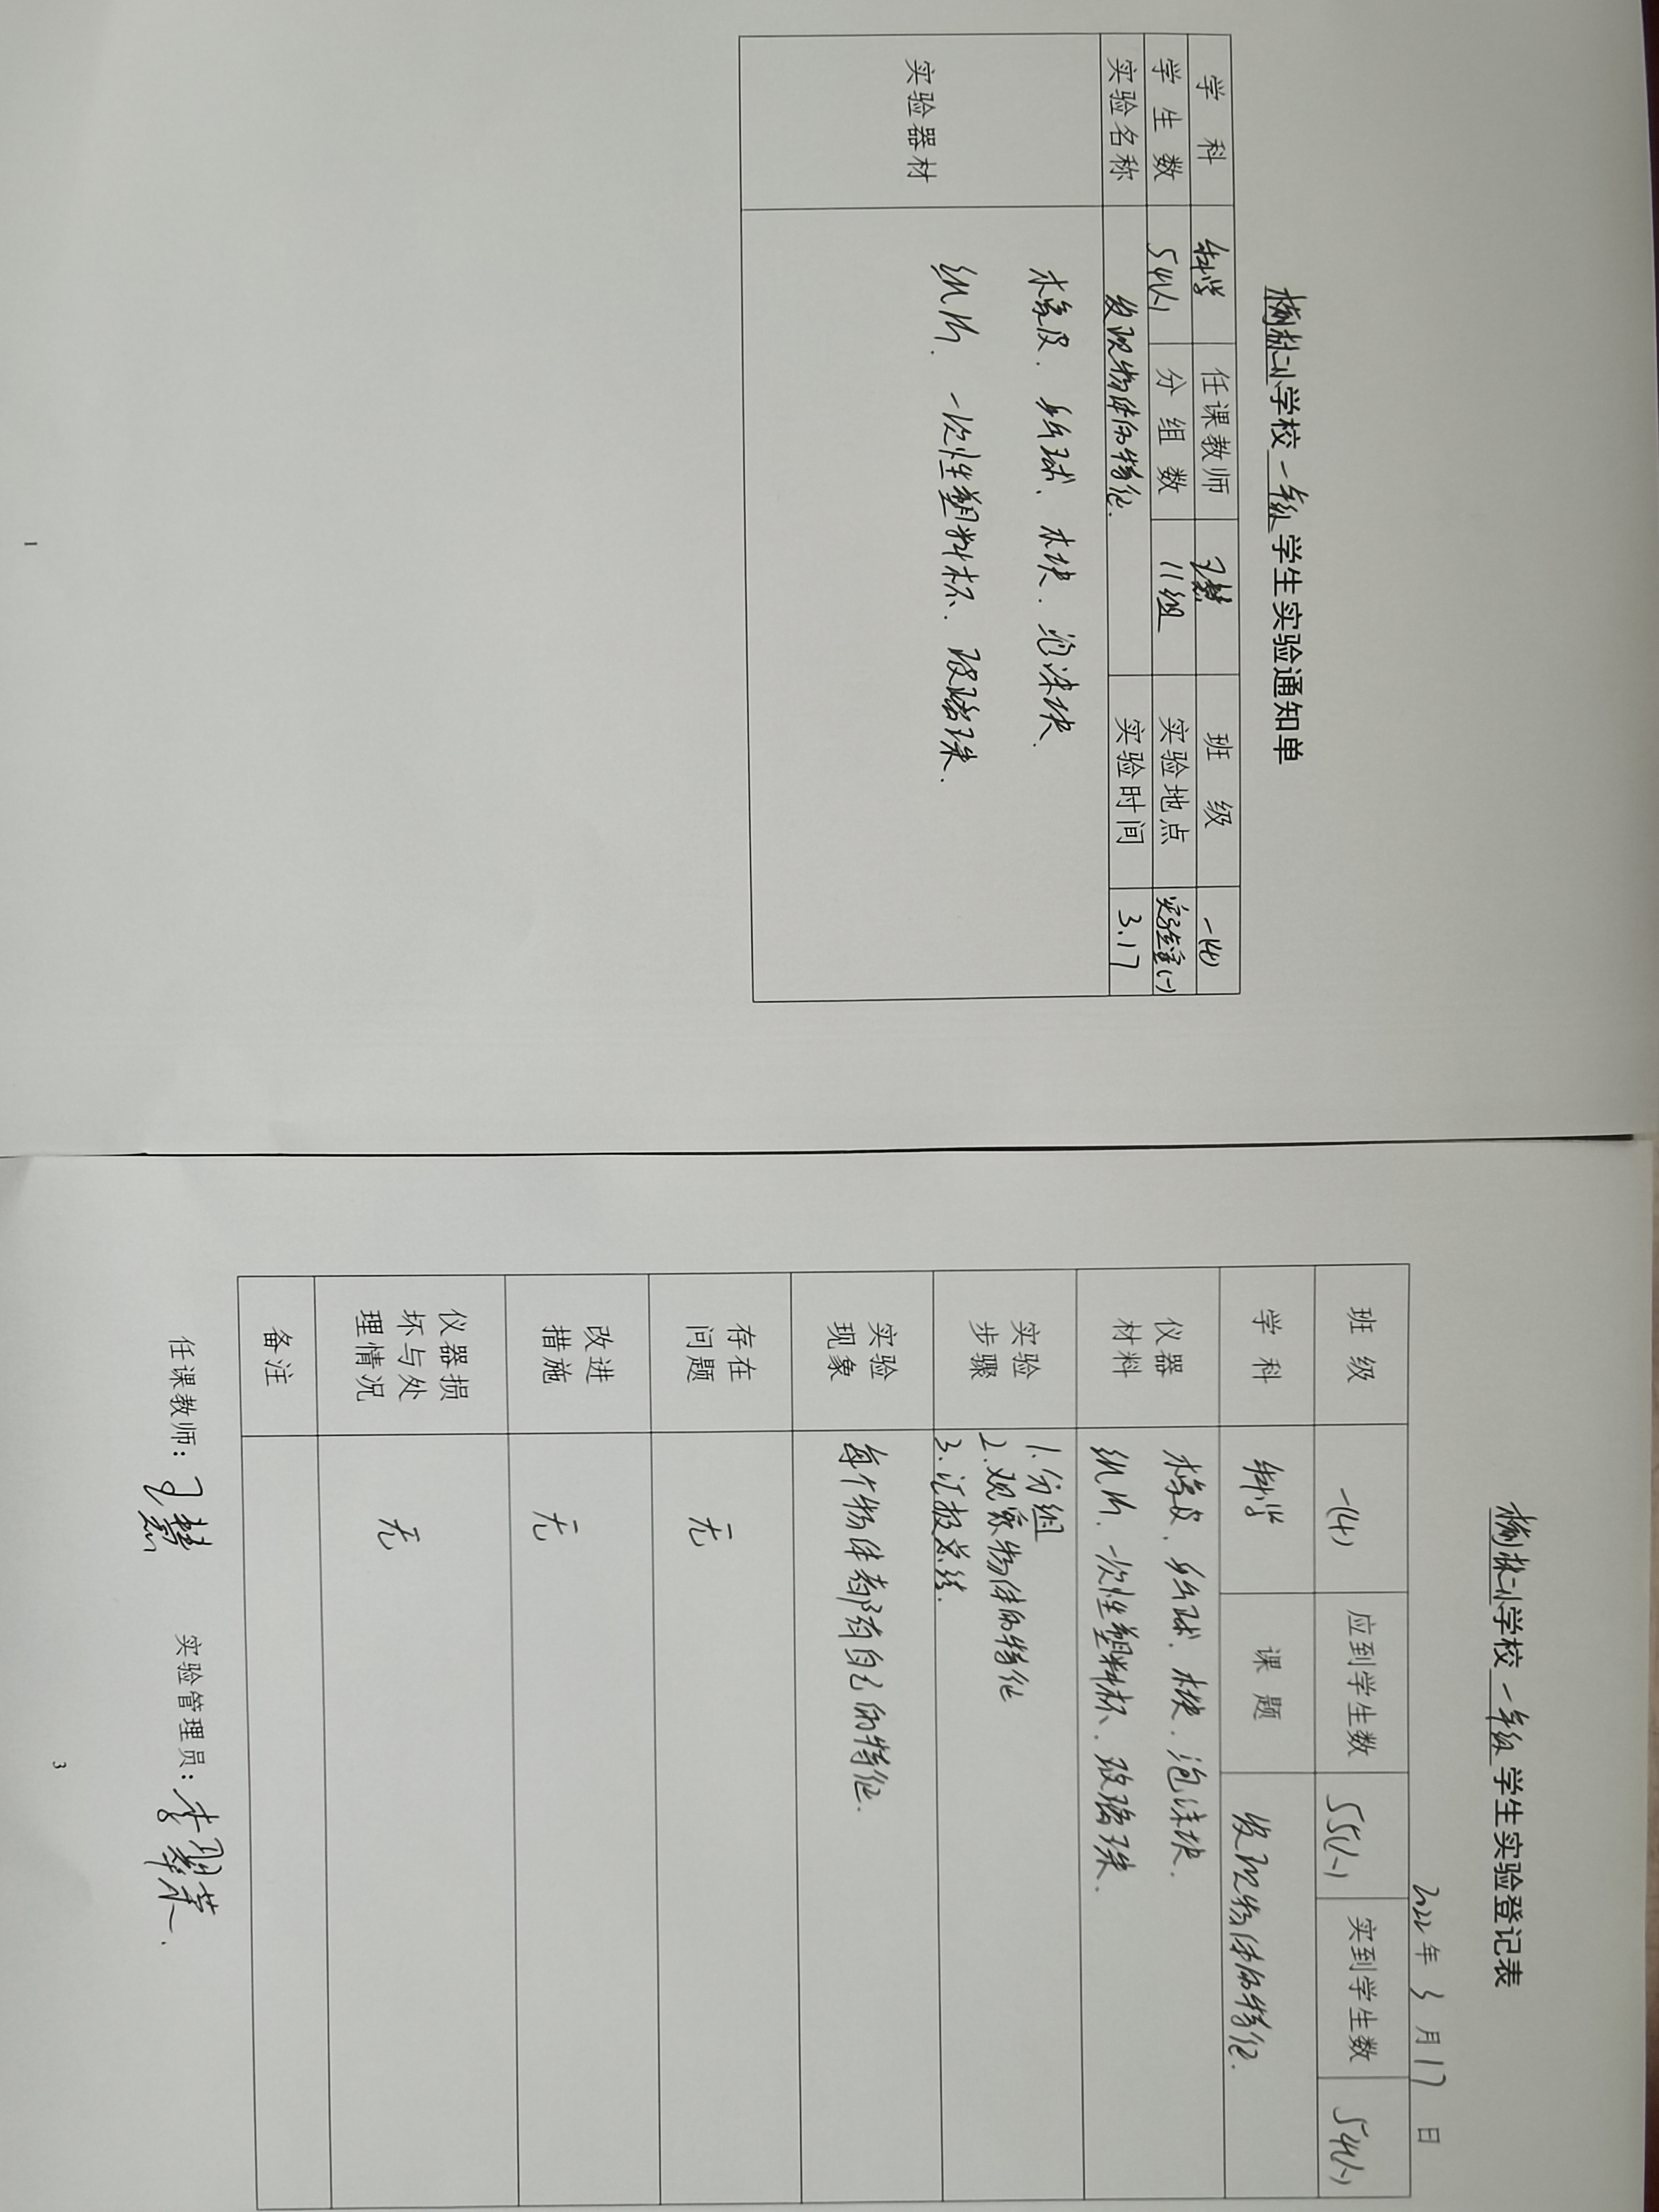 榆林二小学校 一年级 学生实验通知单
学科 科学 任课教师 王慧 班级 一(4)
学生数 54(人) 分组数 11组 实验地点 实验室(一)
实验名称 发现物体的特征. 实验时间 3.17
实验器材
木橡皮、乒乓球、木块、泡沫块.
纸片、一次性塑料杯、玻璃珠.
1
榆林二小学校 一年级 学生实验登记表
2022年 3月17日
班级 一(4) 应到学生数 55(人) 实到学生数 54(人)
学科 科学 课题 发现物体的特征.
仪器材料
橡皮、乒乓球、木块、泡沫块.
纸片、一次性塑料杯、玻璃珠.
实验步骤
1.分组
2.观察物体的特征
3.汇报总结.
实验现象 每个物体都有自己的特征.
存在问题 无
改进措施 无
仪器损坏与处理情况 无
备注
任课教师: 王慧 实验管理员:
3